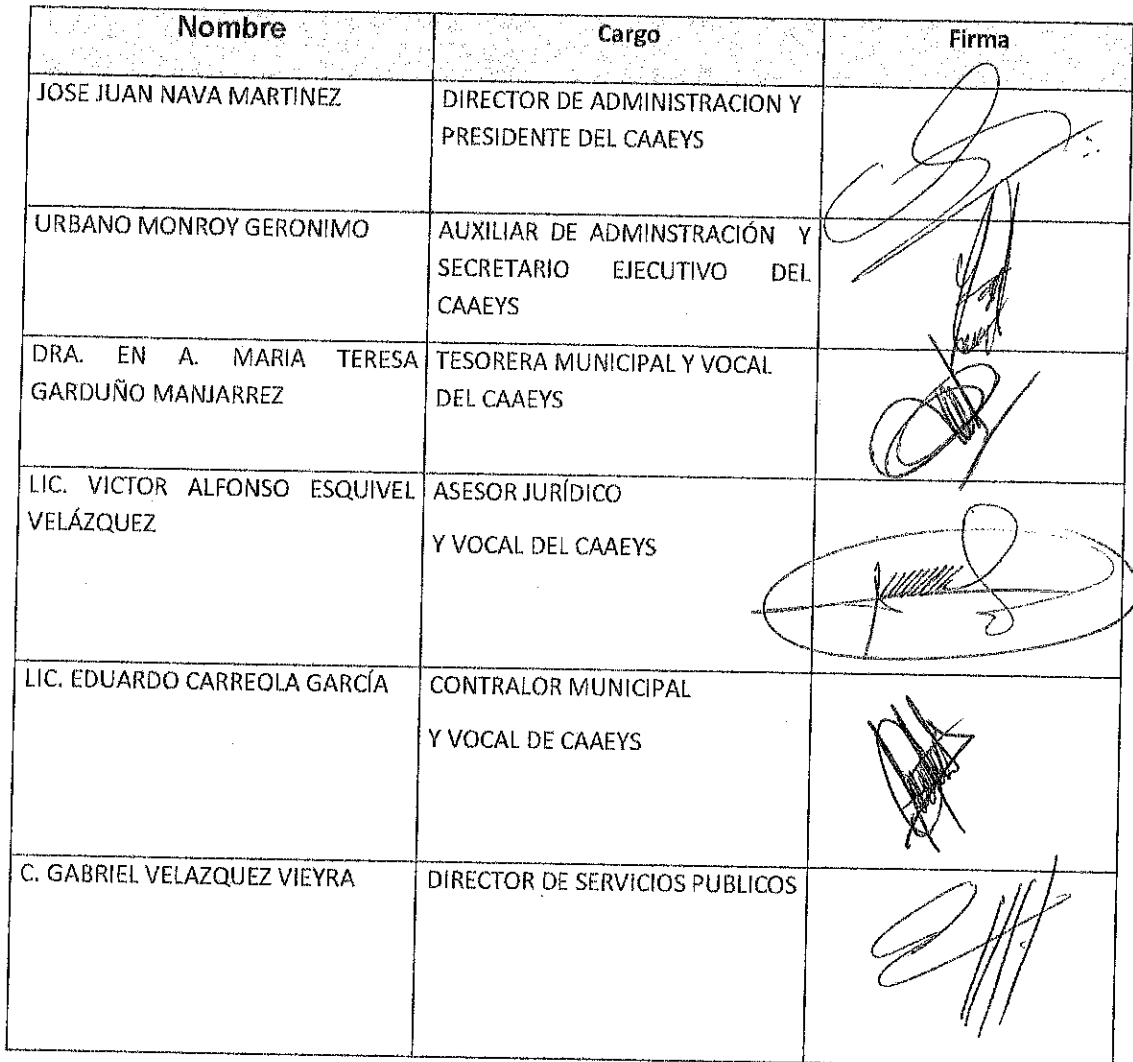 Nombre Cargo Firma
JOSE JUAN NAVA MARTINEZ DIRECTOR DE ADMINISTRACION Y
PRESIDENTE DEL CAAEYS
URBANO MONROY GERONIMO AUXILIAR DE ADMINSTRACIÓN Y
SECRETARIO EJECUTIVO DEL
CAAEYS
DRA. EN A. MARIA TERESA TESORERA MUNICIPAL Y VOCAL
GARDUÑO MANJARREZ DEL CAAEYS
LIC. VICTOR ALFONSO ESQUIVEL ASESOR JURÍDICO
VELÁZQUEZ
Y VOCAL DEL CAAEYS
LIC. EDUARDO CARREOLA GARCÍA CONTRALOR MUNICIPAL
Y VOCAL DE CAAEYS
C. GABRIEL VELAZQUEZ VIEYRA DIRECTOR DE SERVICIOS PUBLICOS